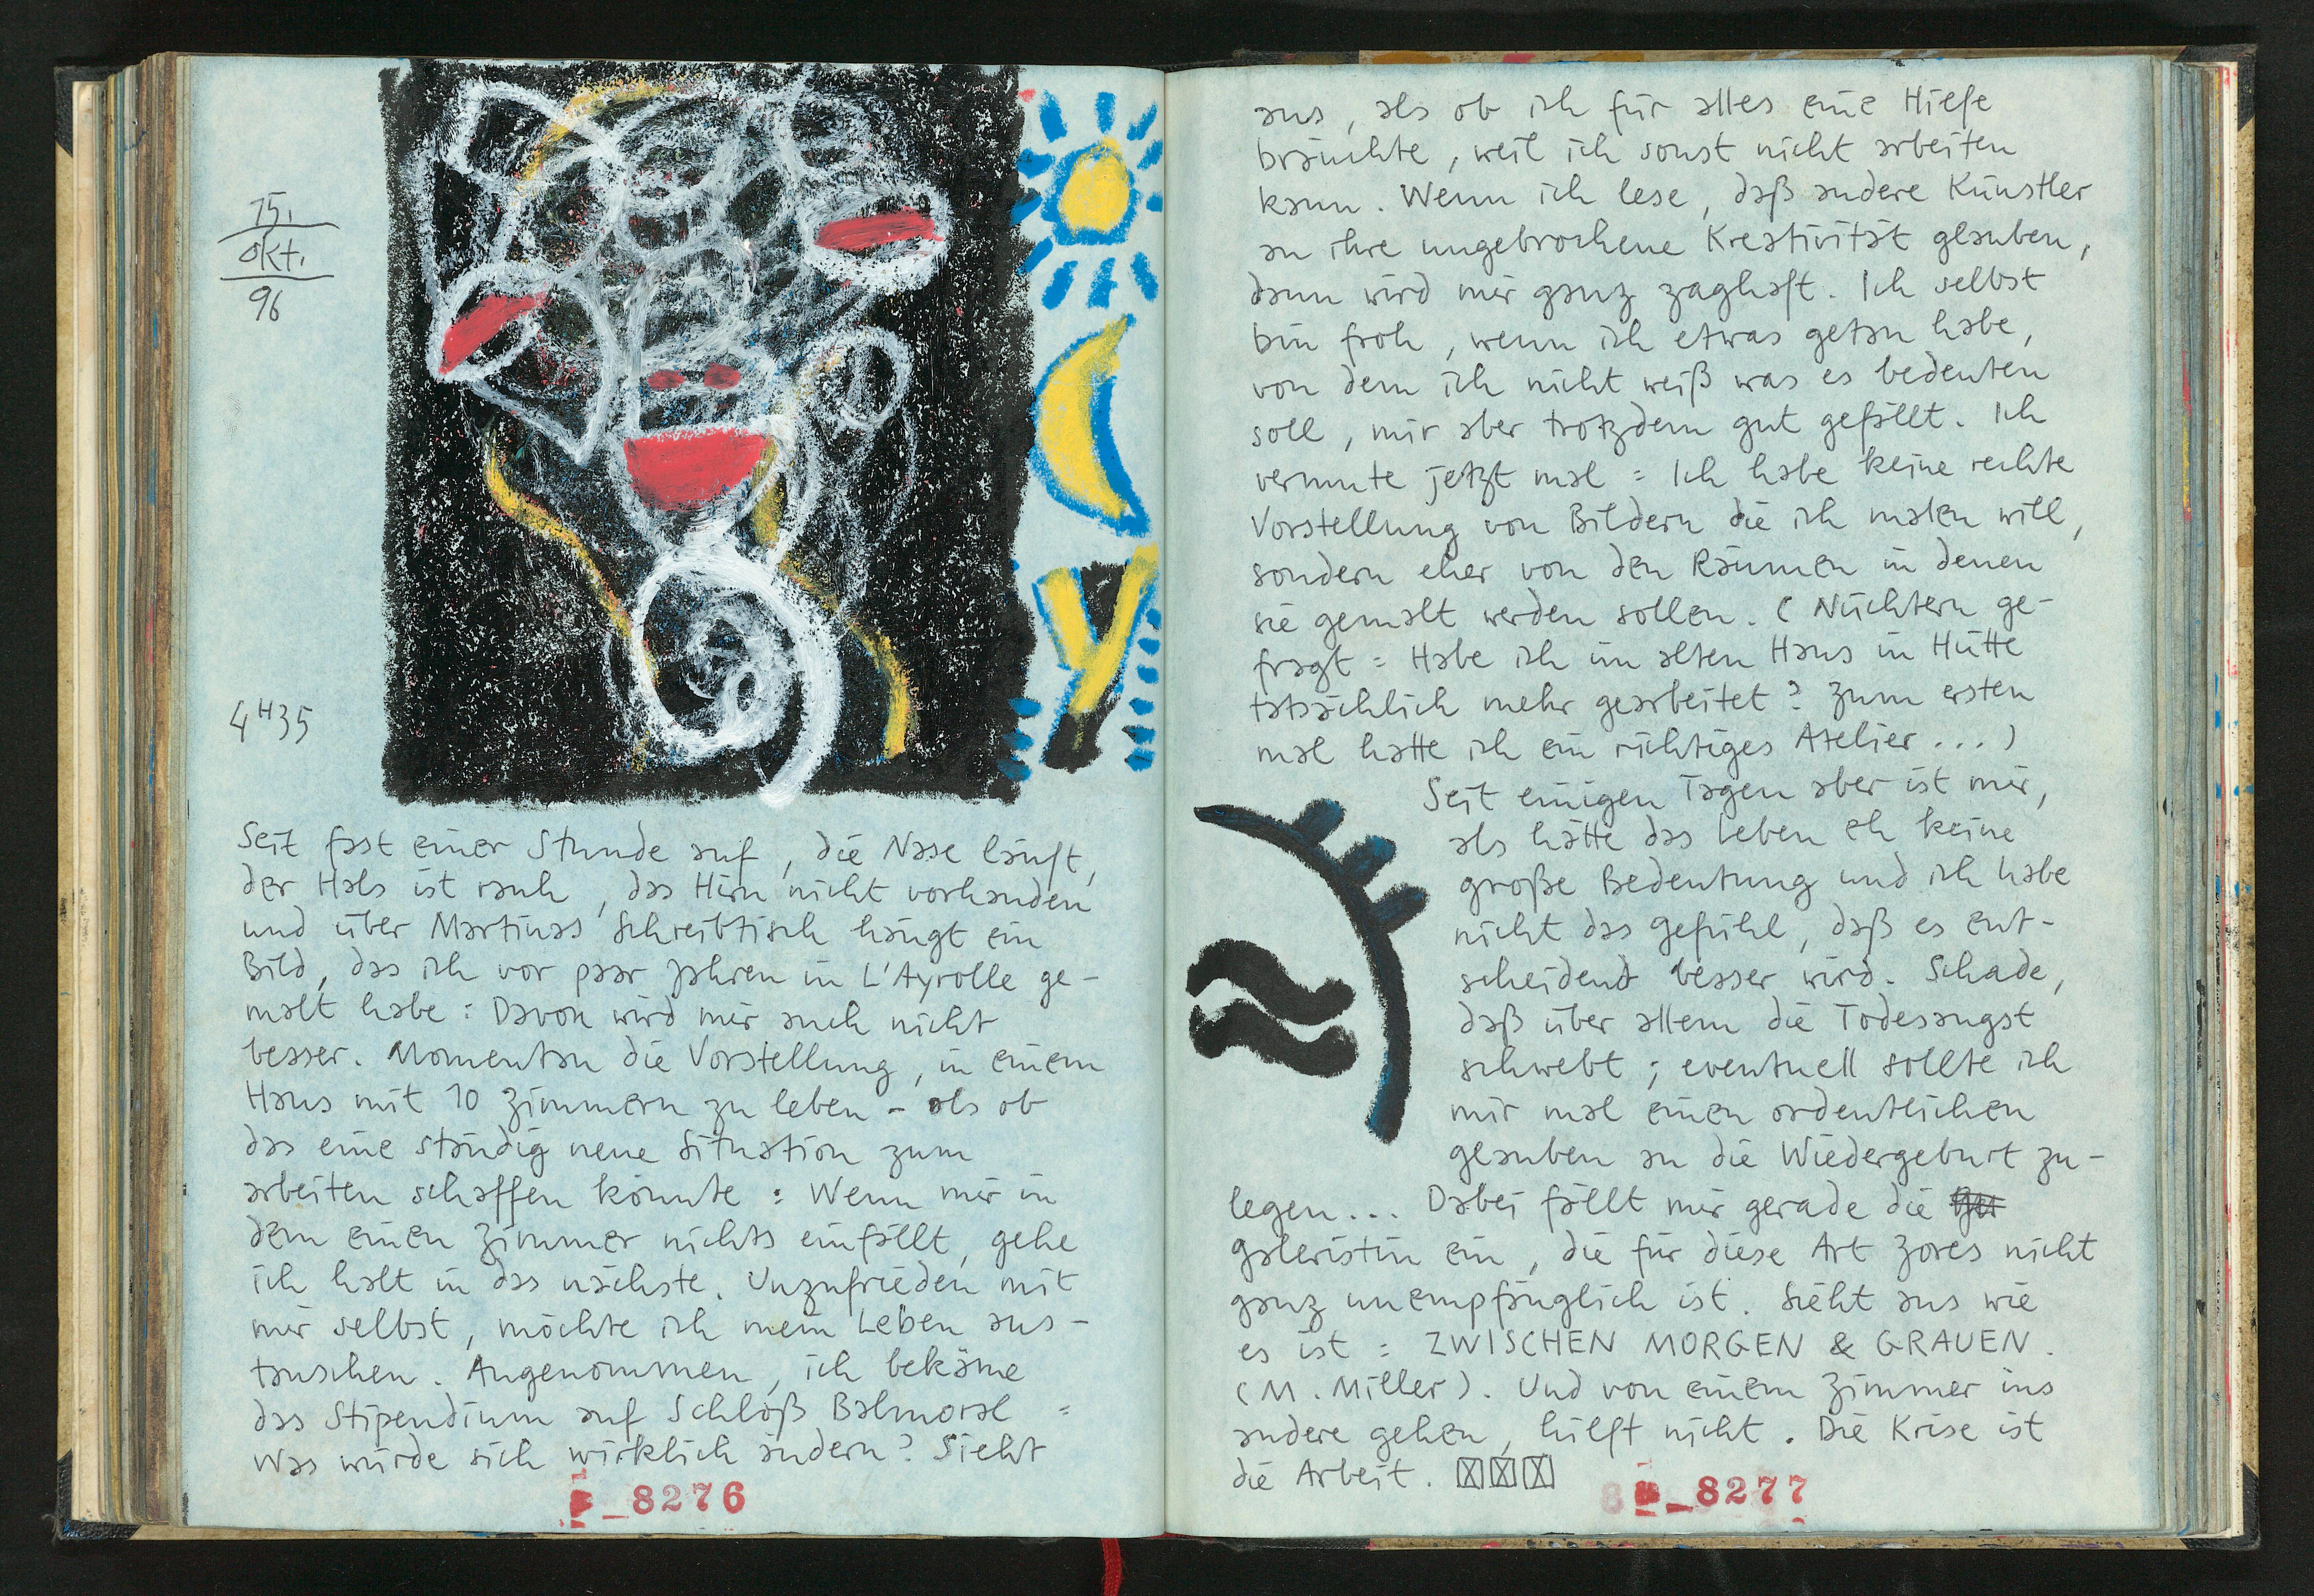 15.
Okt.
96
4H35
Seit fast einer Stunde auf, die Nase läuft,
der Hals ist rauh, das Hirn nicht vorhanden
und über Martinas Schreibtisch hängt ein
Bild, das ich vor paar Jahren in L'Ayrolle ge-
malt habe: Davon wird mir auch nicht
besser. Momentan die Vorstellung, in einem
Haus mit 10 Zimmern zu leben - als ob
das eine ständig neue Situation zum
arbeiten schaffen könnte: Wenn mir in
dem einen Zimmer nichts einfällt, gehe
ich halt in das nächste. Unzufrieden mit
mir selbst, möchte ich mein Leben aus-
tauschen. Angenommen, ich bekäme
das Stipendium auf Schloß Balmoral =
Was würde sich wirklich ändern? Sieht
8276
aus, als ob ich für alles eine Hilfe
bräuchte, weil ich sonst nicht arbeiten
kann. Wenn ich lese, daß andere Künstler
an ihre ungebrochene Kreativität glauben,
dann wird mir ganz zaghaft. Ich selbst
bin froh, wenn ich etwas getan habe,
von dem ich nicht weiß was es bedeuten
soll, mir aber trotzdem gut gefällt. Ich
vermute jetzt mal = Ich habe keine rechte
Vorstellung von Bildern die ich malen will,
sondern eher von den Räumen in denen
sie gemalt werden sollen. (Nüchtern ge-
fragt = Habe ich im alten Haus in Hütte
tatsächlich mehr gearbeitet? Zum ersten
mal hatte ich ein richtiges Atelier...)
Seit einigen Tagen aber ist mir,
als hätte das Leben eh keine
große Bedeutung und ich habe
nicht das Gefühl, daß es ent-
scheidend besser wird. Schade,
daß über allem die Todesangst
schwebt; eventuell sollte ich
mir mal einen ordentlichen
Glauben an die Wiedergeburt zu-
legen... Dabei fällt mir gerade die
Galeristin ein, die für diese Art Zores nicht
ganz unempfänglich ist. Sieht aus wie
es ist: ZWISCHEN MORGEN & GRAUEN.
(M. Miller). Und von einem Zimmer ins
andere gehen, hilft nicht. Die Krise ist
die Arbeit.
8277